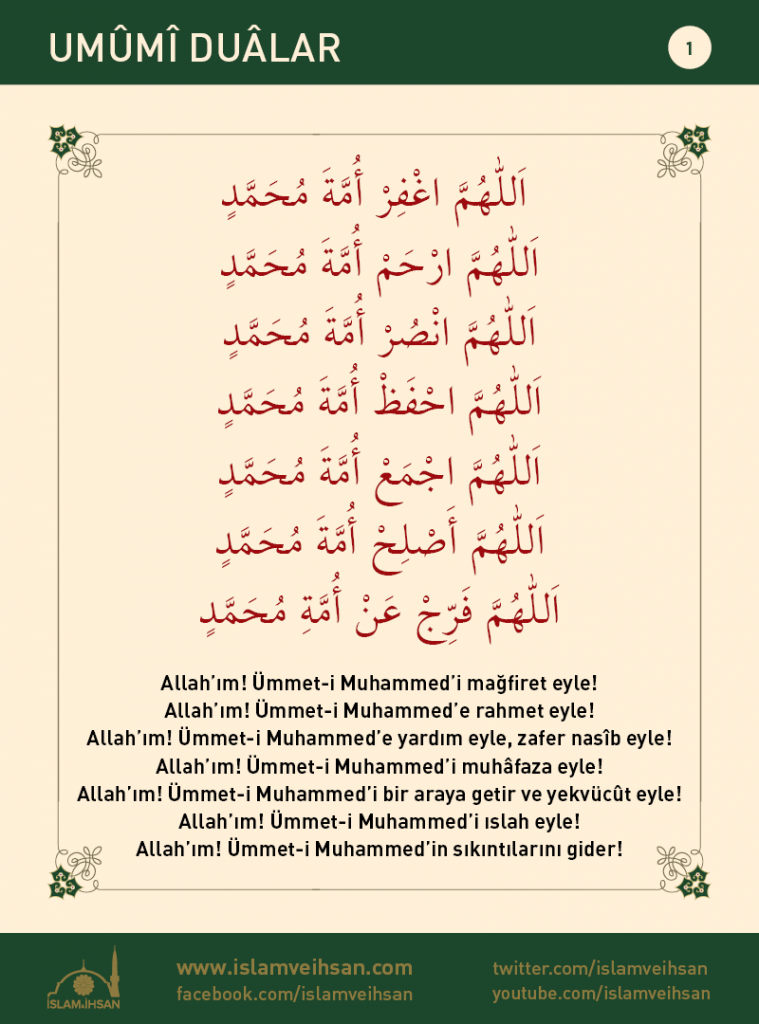 UMÛMÎ DUÂLAR
1
اَللّٰهُمَّ اغْفِرْ أُمَّةَ مُحَمَّدٍ
اَللّٰهُمَّ ارْحَمْ أُمَّةَ مُحَمَّدٍ
اَللّٰهُمَّ انْصُرْ أُمَّةَ مُحَمَّدٍ
اَللّٰهُمَّ احْفَظْ أُمَّةَ مُحَمَّدٍ
اَللّٰهُمَّ اجْمَعْ أُمَّةَ مُحَمَّدٍ
اَللّٰهُمَّ أَصْلِحْ أُمَّةَ مُحَمَّدٍ
اَللّٰهُمَّ فَرِّجْ عَنْ أُمَّةِ مُحَمَّدٍ
Allah’ım! Ümmet-i Muhammed’i mağfiret eyle!
Allah’ım! Ümmet-i Muhammed’e rahmet eyle!
Allah’ım! Ümmet-i Muhammed’e yardım eyle, zafer nasîb eyle!
Allah’ım! Ümmet-i Muhammed’i muhâfaza eyle!
Allah’ım! Ümmet-i Muhammed’i bir araya getir ve yekvücût eyle!
Allah’ım! Ümmet-i Muhammed’i ıslah eyle!
Allah’ım! Ümmet-i Muhammed’in sıkıntılarını gider!
www.islamveihsan.com
twitter.com/islamveihsan
facebook.com/islamveihsan
youtube.com/islamveihsan
İSLAM&İHSAN